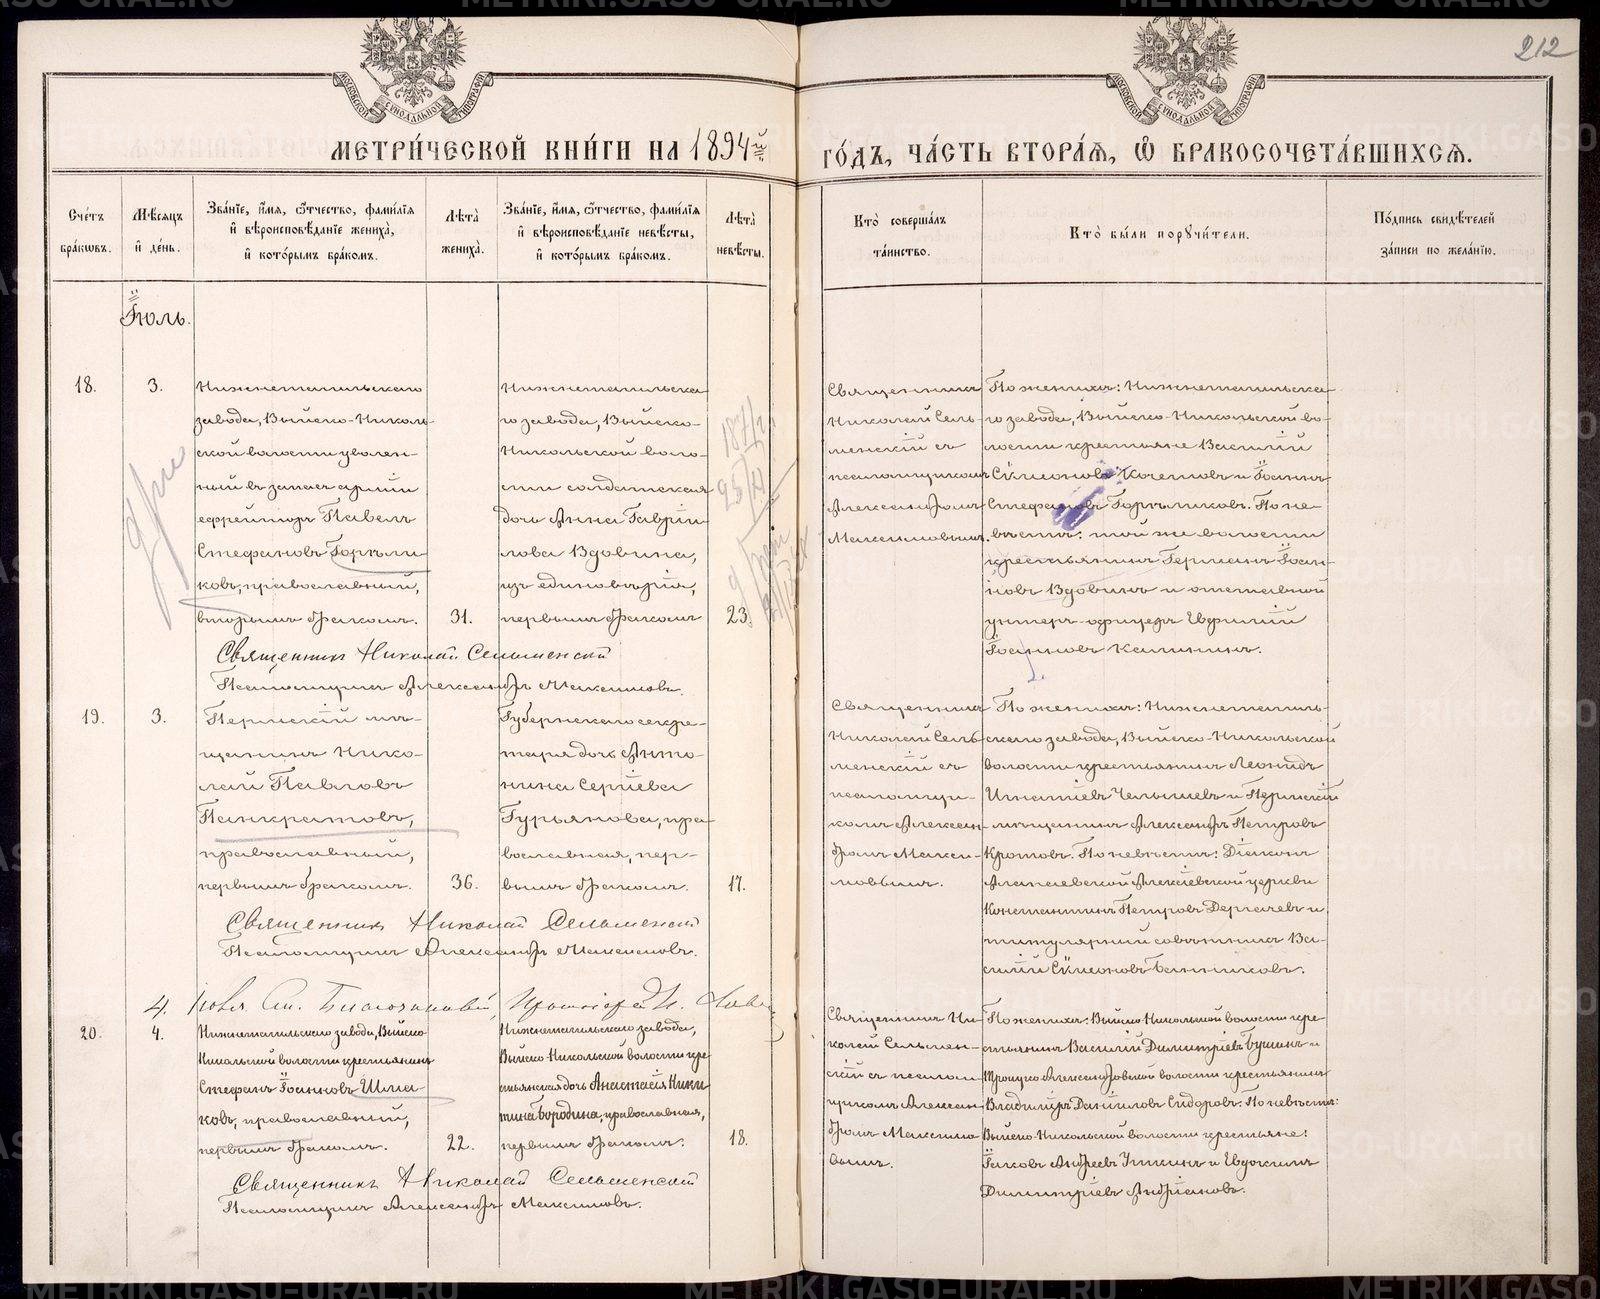 212
МЕТРИ́ЧЕСКОЙ КНИ́ГИ НА 1894й
ГО́ДЪ, ЧА́СТЬ ВТОРА́Я, Ѡ БРАКОСОЧЕТА́ВШИХСЯ.
Сче́тъ бра́кѡвъ.
Мѣ́сяцъ и҆ де́нь.
Зва́нїе, и҆́мя, ѻ҆́тчество, фами́лїя и҆ вѣроисповѣ́данїе жениха̀, и҆ кото́рымъ бра́комъ.
Лѣ́та жениха̀.
Зва́нїе, и҆́мя, ѻ҆́тчество, фами́лїя и҆ вѣроисповѣ́данїе невѣ́сты, и҆ кото́рымъ бра́комъ.
Лѣ́та невѣ́сты.
Кто̀ соверша́лъ та́инство.
Кто̀ бы́ли порꙋчи́тели.
По́дпись свидѣ́телей за́писи по жела́нїю.
Іюль.
18.
3.
Нижнетагильскаго
завода, Выйско-Николь-
ской волости уволен-
ный въ запасъ арміи
ефрейторъ Павелъ
Стефановъ Горѣли-
ковъ, православный,
вторымъ бракомъ.
31.
Нижнетагильска-
го завода, Выйско-
Никольской воло-
сти солдатская
дочь Анна Гаврии-
лова Вдовина,
изъ единовѣрія,
первымъ бракомъ
23.
Священникъ
Николай Сель-
менскій съ
псаломщикомъ
Александромъ
Максимовымъ.
По женихѣ: Нижнетагильска-
го завода, Выйско-Никольской во-
лости крестьяне Василій
Сѵмеоновъ Кочетовъ и Іоаннъ
Стефановъ Горѣликовъ. По не-
вѣстѣ: той же волости
крестьянинъ Германъ Іоан-
новъ Вдовинъ и отставной
унтеръ-офицеръ Евфимій
Іоанновъ Калининъ.
Священникъ Николай Сельменскій
Псаломщикъ Александръ Максимовъ.
19.
3.
Пермскій мѣ-
щанинъ Нико-
лай Павловъ
Панкратовъ,
православный,
первымъ бракомъ.
36.
Губернскаго секре-
таря дочь Анто-
нина Сергіева
Гурьянова, пра-
вославная, пер-
вымъ бракомъ.
17.
Священникъ
Николай Сель-
менскій съ
псаломщи-
комъ Алексан-
дромъ Макси-
мовымъ.
По женихѣ: Нижнетагиль-
скаго завода, Выйско-Никольской
волости крестьянинъ Леонидъ
Игнатіевъ Челышевъ и Пермскій
мѣщанинъ Александръ Петровъ
Кротовъ. По невѣстѣ: Діаконъ
Алапаевской Алексіевской церкви
Константинъ Петровъ Дергачевъ и
титулярный совѣтникъ Ва-
силій Сѵмеоновъ Банниковъ.
Священникъ Николай Сельменскій
Псаломщикъ Александръ Максимовъ.
4.
20.
4.
Нижнетагильскаго завода, Выйско-
Никольской волости крестьянинъ
Стефанъ Іоанновъ Шма-
ковъ, православный,
первымъ бракомъ.
22.
Нижнетагильскаго завода,
Выйско-Никольской волости кре-
стьянская дочь Анастасія Ники-
тина Бородина, православная,
первымъ бракомъ.
18.
Священникъ Ни-
колай Сельмен-
скій съ псалом-
щикомъ Алексан-
дромъ Максимо-
вымъ.
По женихѣ: Выйско-Никольской волости кре-
стьянинъ Василій Димитріевъ Бушинъ и
Троицко-Александровской волости крестьянинъ
Владиміръ Даніиловъ Сидоровъ. По невѣстѣ:
Выйско-Никольской волости крестьяне:
Іаковъ Андреевъ Уткинъ и Евдокимъ
Димитріевъ Андріановъ.
Священникъ Николай Сельменскій
Псаломщикъ Александръ Максимовъ.